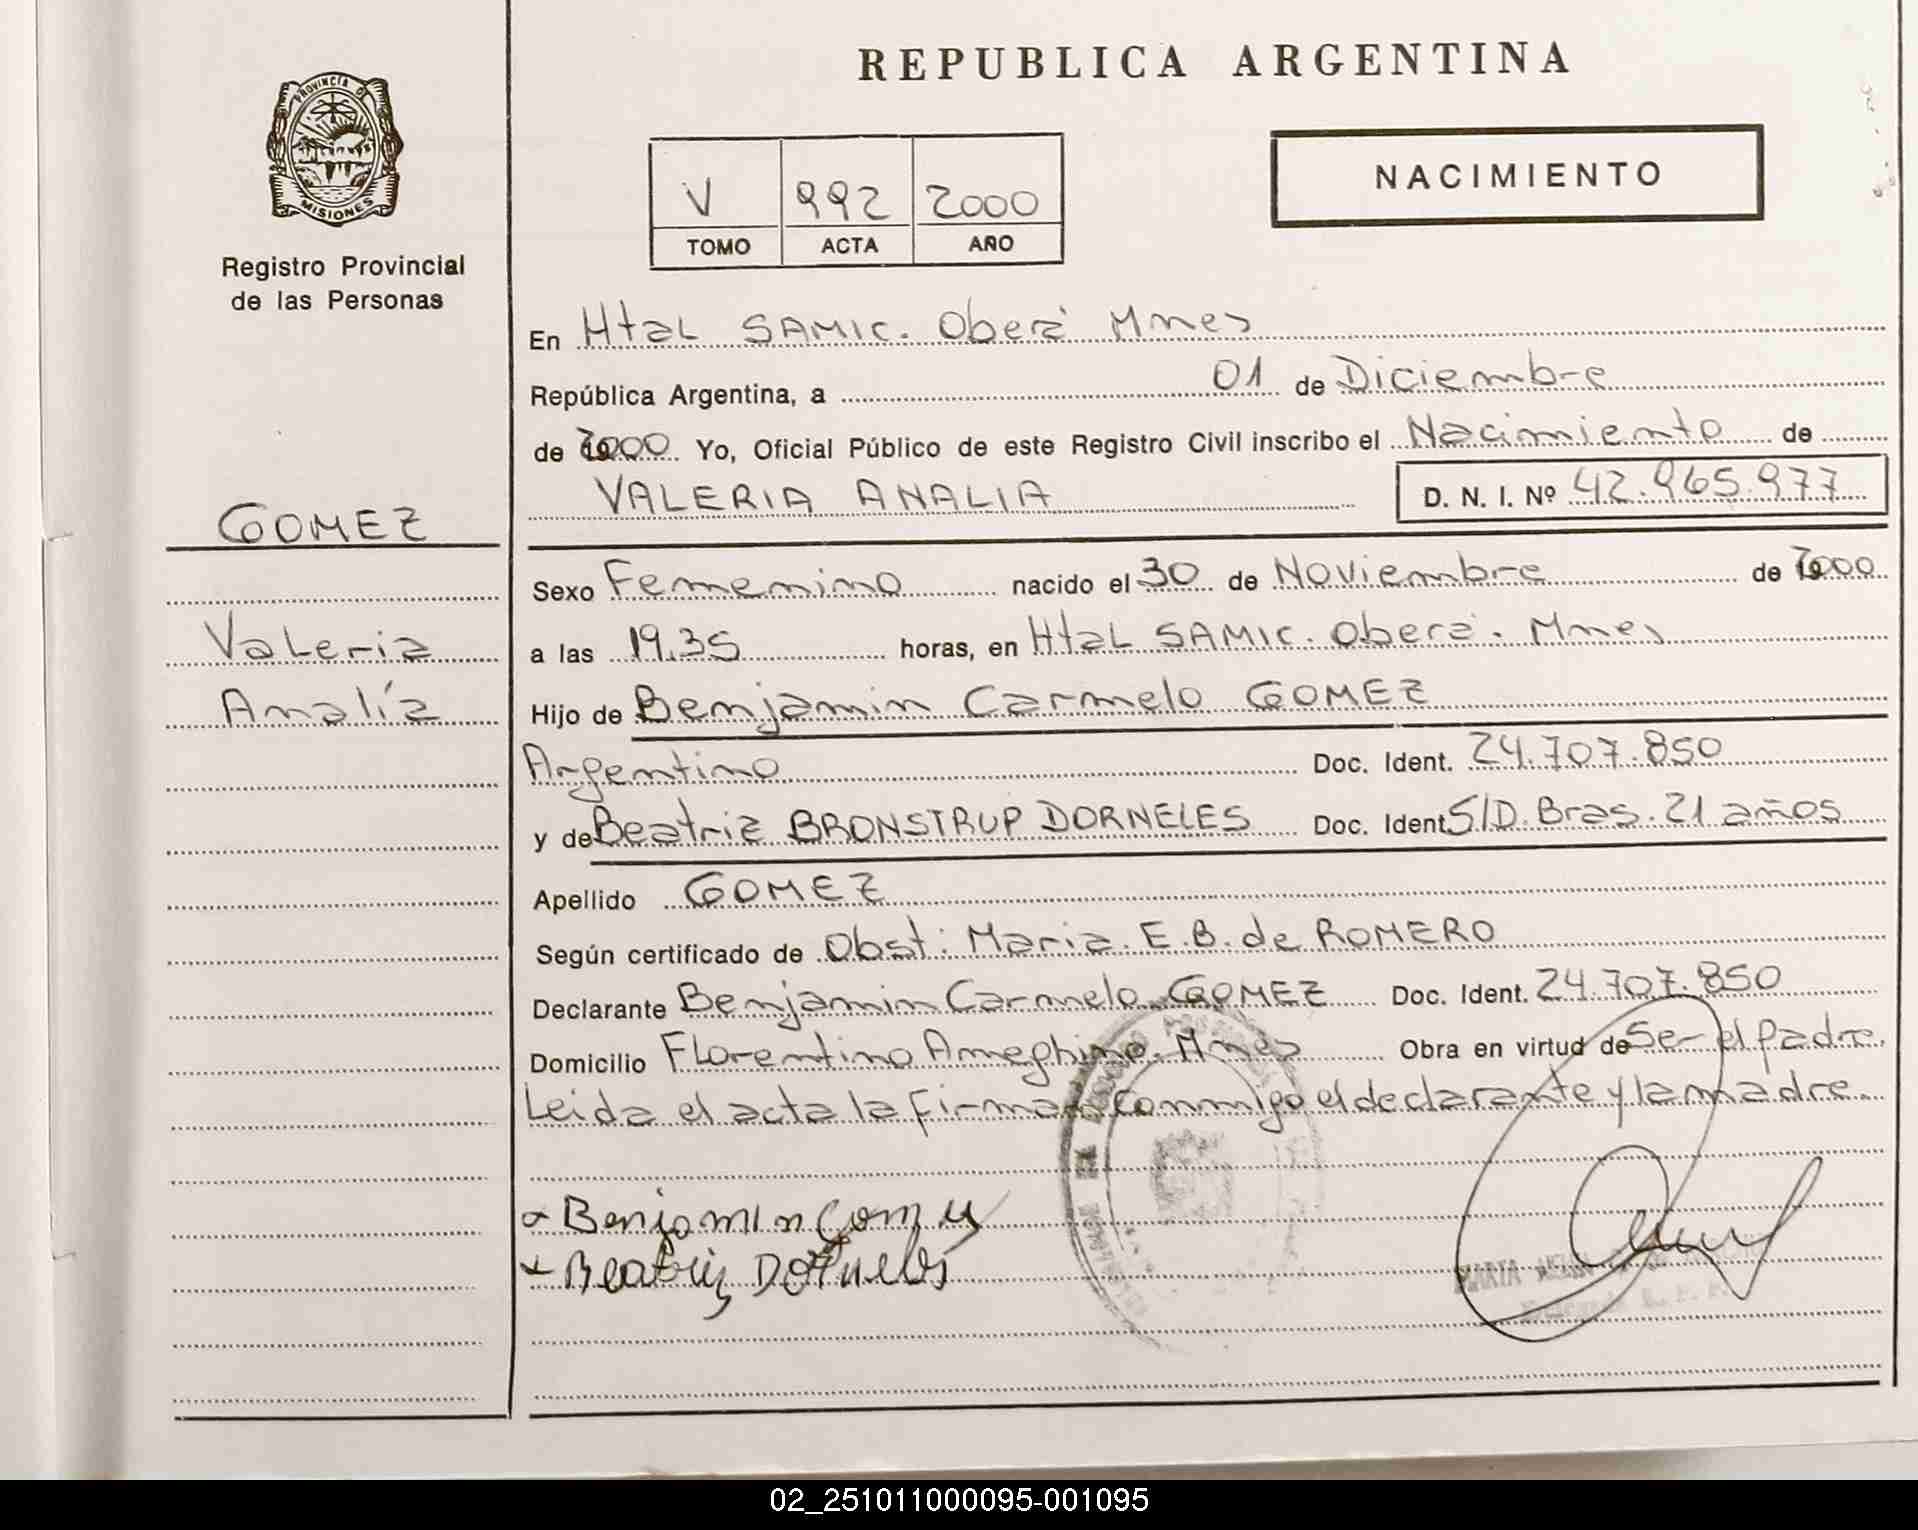 REPUBLICA ARGENTINA
PROVINCIA D
MISIONES
Registro Provincial
de las Personas
NACIMIENTO
V 992 2000
TOMO ACTA AÑO
En Htal SAMIC. Oberá Mnes
República Argentina, a 01 de Diciembre
de 2000 Yo, Oficial Público de este Registro Civil inscribo el Nacimiento de
VALERIA ANALIA D. N. I. Nº 42.965.977
GOMEZ
Valeria
Analía
Sexo Femenino nacido el 30 de Noviembre de 2000
a las 19.35 horas, en Htal SAMIC. Oberá. Mnes
Hijo de Benjamin Carmelo GOMEZ
Argentino Doc. Ident. 24.707.850
y de Beatriz BRONSTRUP DORNELES Doc. Ident S/D. Bras. 21 años
Apellido GOMEZ
Según certificado de Obst: Maria. E.B. de ROMERO
Declarante Benjamin Carmelo GOMEZ Doc. Ident. 24.707.850
Domicilio Florentino Ameghino. Mnes Obra en virtud de Ser el padre.
Leida el acta la firman conmigo el declarante y la madre.
Benjamin Gomez
Beatriz Dorneles
02_251011000095-001095